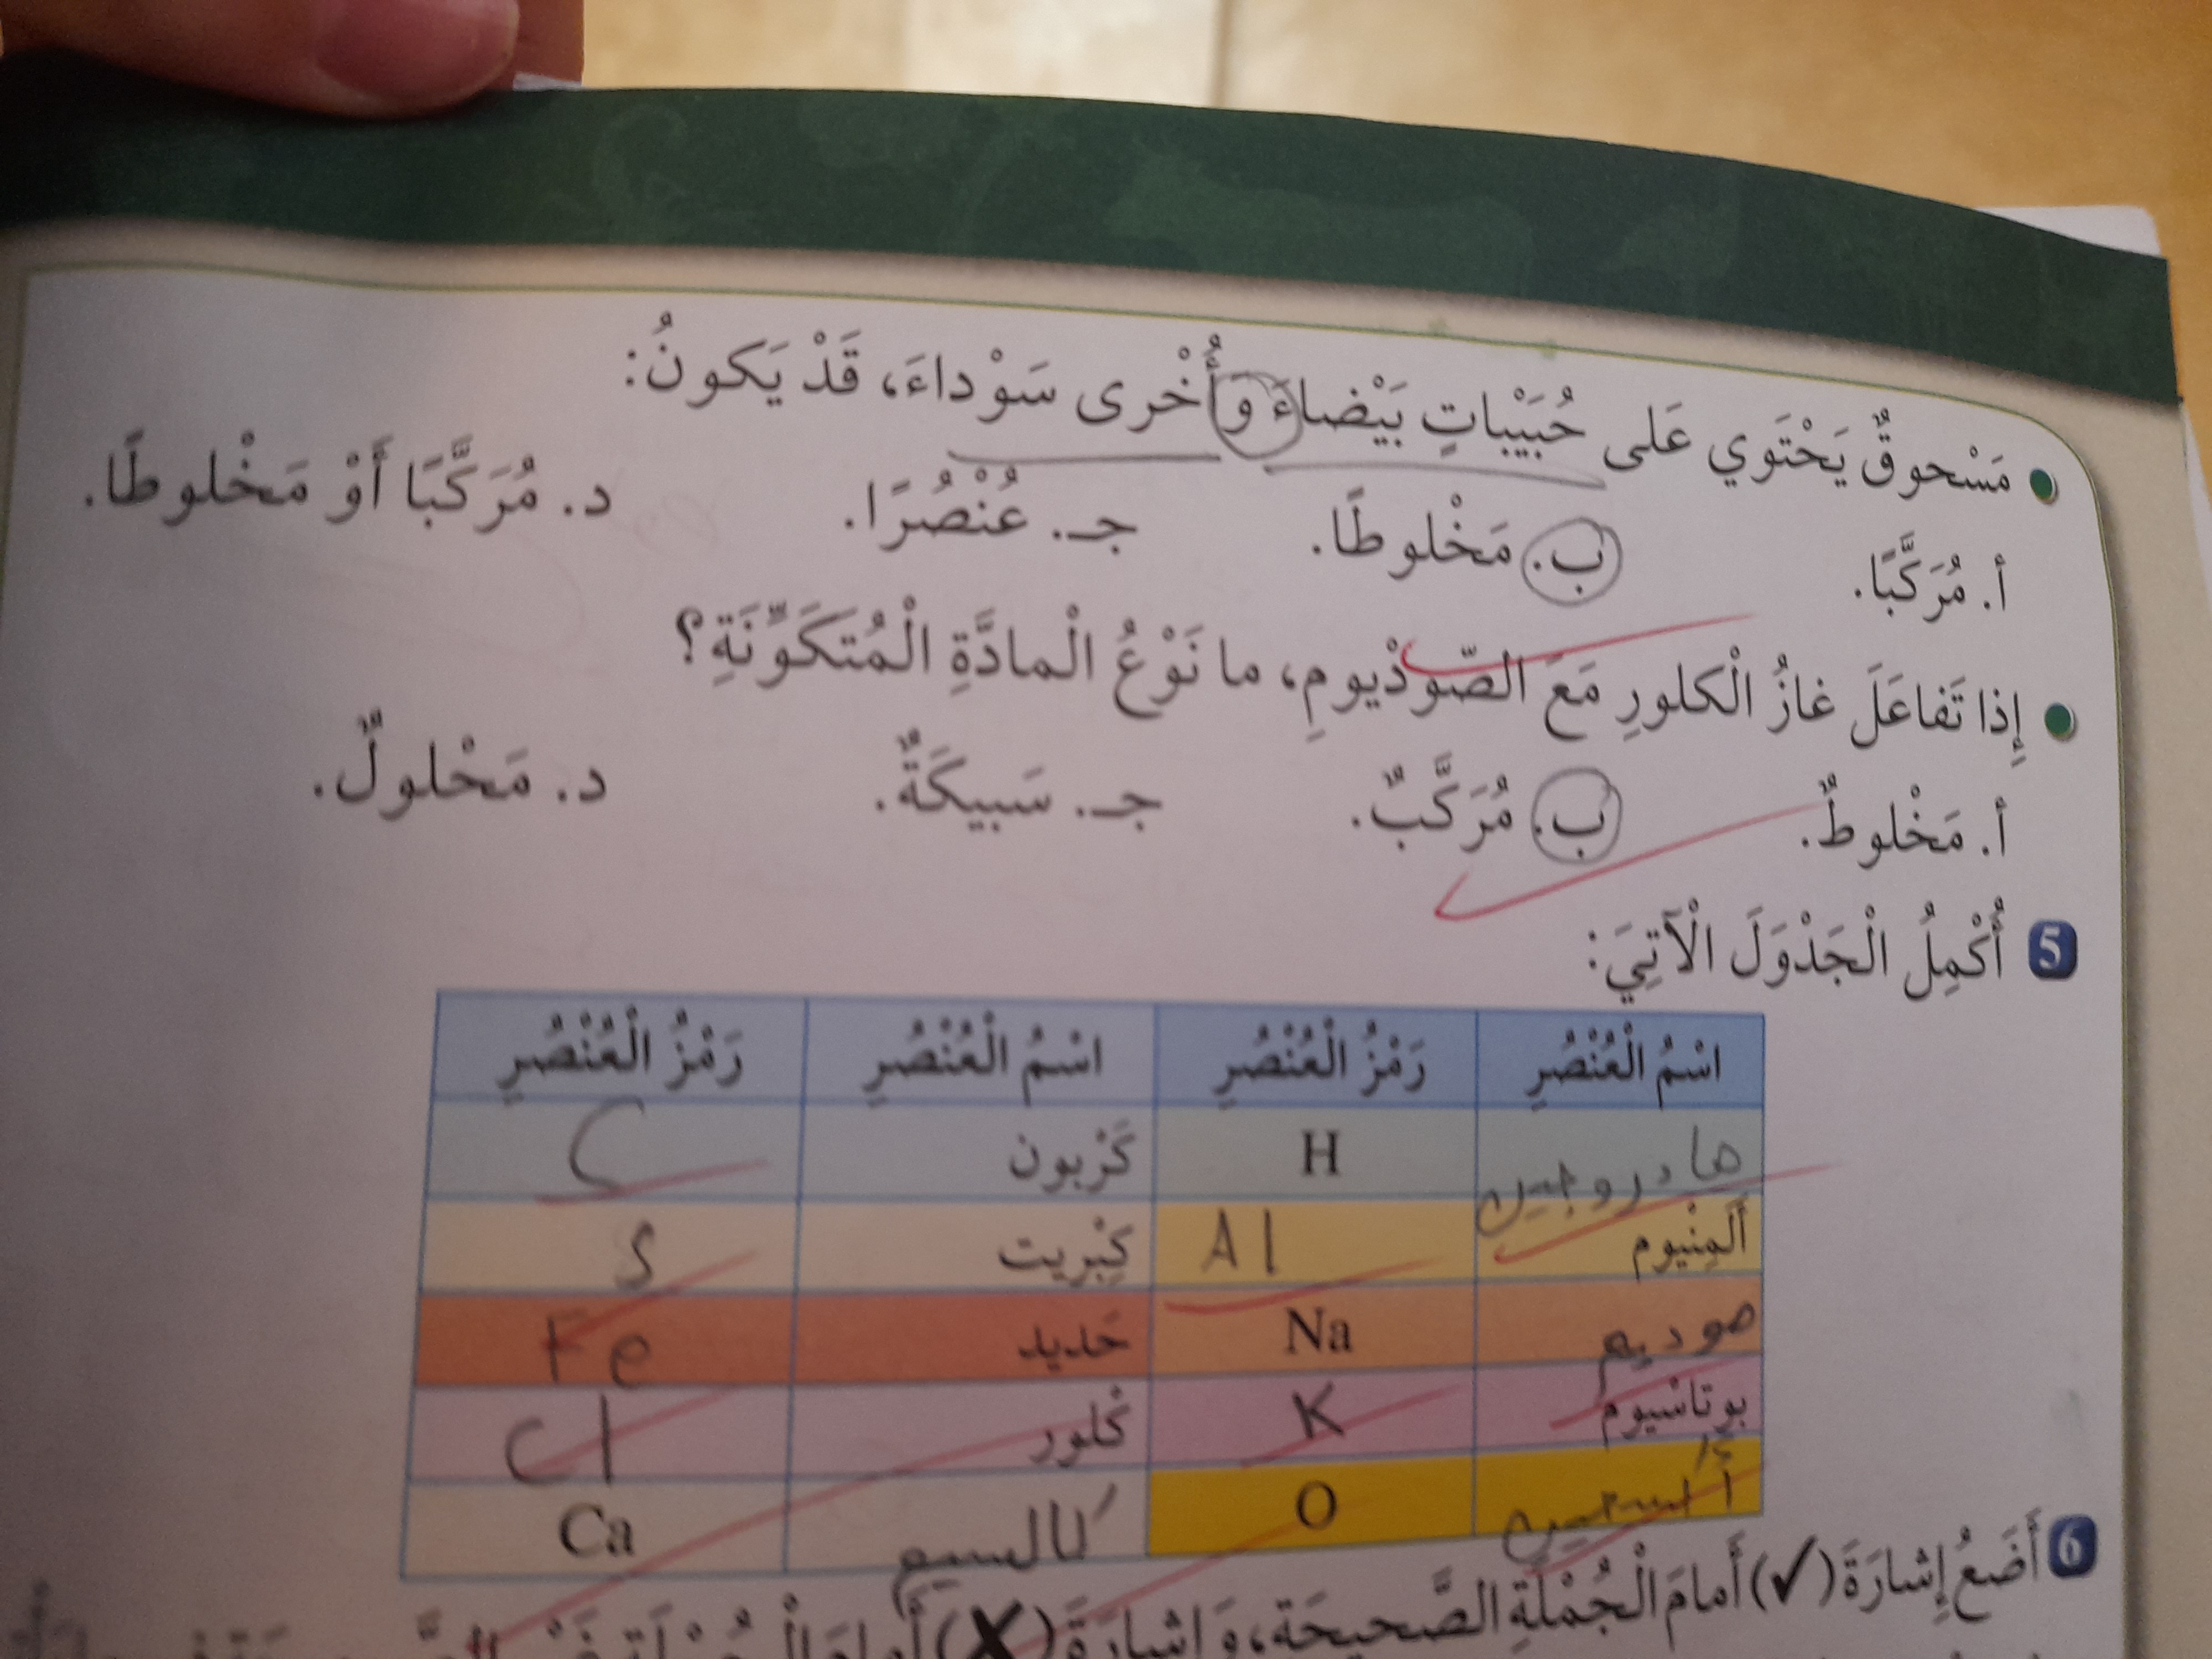 مَسْحوقٌ يَحْتَوي عَلى حُبَيْباتٍ بَيْضاءَ وَأُخْرى سَوْداءَ، قَدْ يَكونُ:
أ. مُرَكَّبًا. ب. مَخْلوطًا. جـ. عُنْصُرًا. د. مُرَكَّبًا أَوْ مَخْلوطًا.
إِذا تَفاعَلَ غازُ الْكلورِ مَعَ الصّوْدْيومِ، ما نَوْعُ الْمادَّةِ الْمُتَكَوِّنَةِ؟
أ. مَخْلوطٌ. ب. مُرَكَّبٌ. جـ. سَبيكَةٌ. د. مَحْلولٌ.
5 أُكْمِلُ الْجَدْوَلَ الْآتِيَ:
اسْمُ الْعُنْصُرِ رَمْزُ الْعُنْصُرِ اسْمُ الْعُنْصُرِ رَمْزُ الْعُنْصُرِ
هادروجين H كَرْبون C
أَلَمِنْيوم Al كِبْريت S
صوديم Na حَديد Fe
بوتاسْيوم K كْلور Cl
O كالسيم Ca
6 أَضَعُ إِشارَةَ (✓) أَمامَ الْجُمْلَةِ الصَّحيحَة، وَإِشارَةَ (✗)